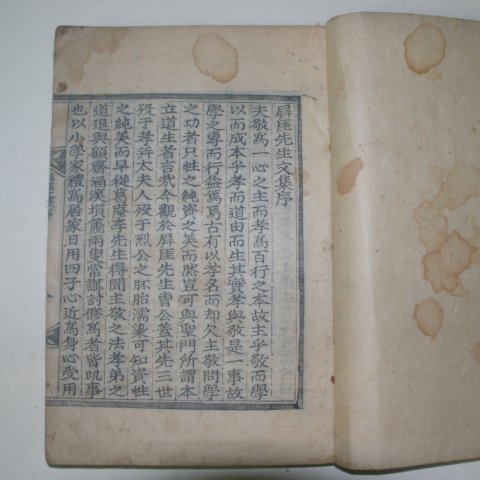 屛厓先生文集序
夫敬爲一心之主而孝爲百行之本故主乎敬而學
以而成本乎孝而道由而生其實孝與敬是一事故
學之專而行益篤焉古有以孝名而却欠主敬問學
之功者只性之純資之美而然豈可與聖門所謂本
立道生者言哉今觀於屛厓先生曺公蓋其先三世
歿于孝幷太夫人歿于烈公之胚胎濡染可知資性
之純美而早從葛庵李先生得聞主敬之法孝弟之
道退與顧齋滄溪塤篪兩叟常講討修爲者皆此事
也以小學家禮爲居家日用四子心近爲身心受用